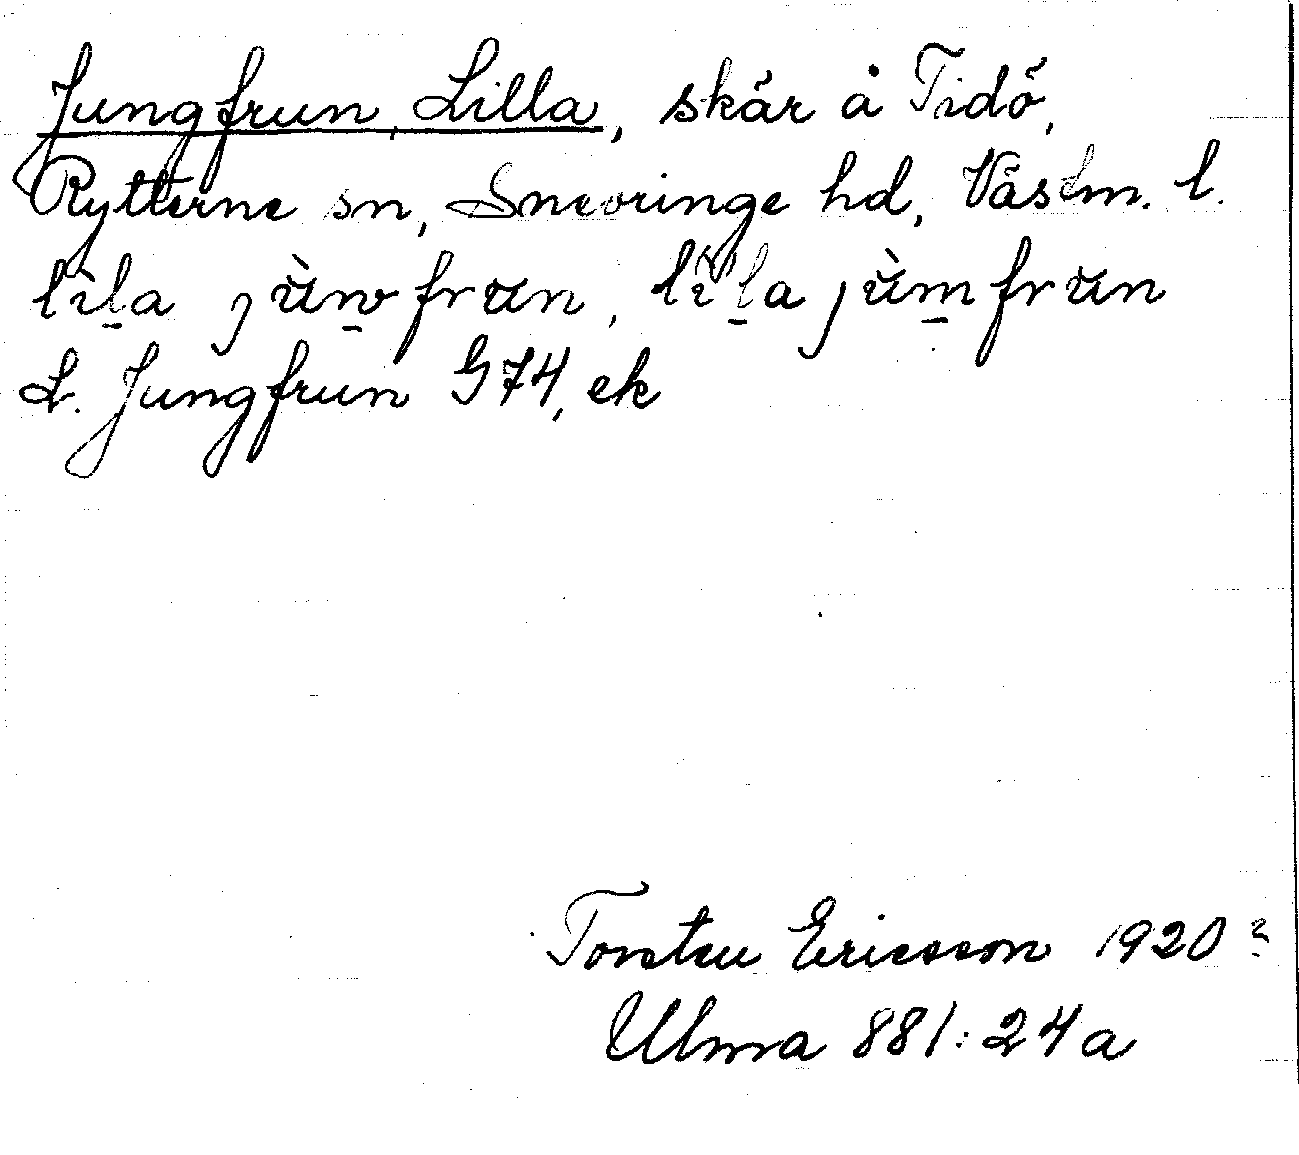 Jungfrun, Lilla, skär å Tidö,
Rytterne sn, Snevringe hd, Västm. l.
lìl̠a jùw̠frun, lìl̠a jùm̠frun
L. Jungfrun G74, ek
Torsten Ericsson 1920 ?
Ulma 881:24a